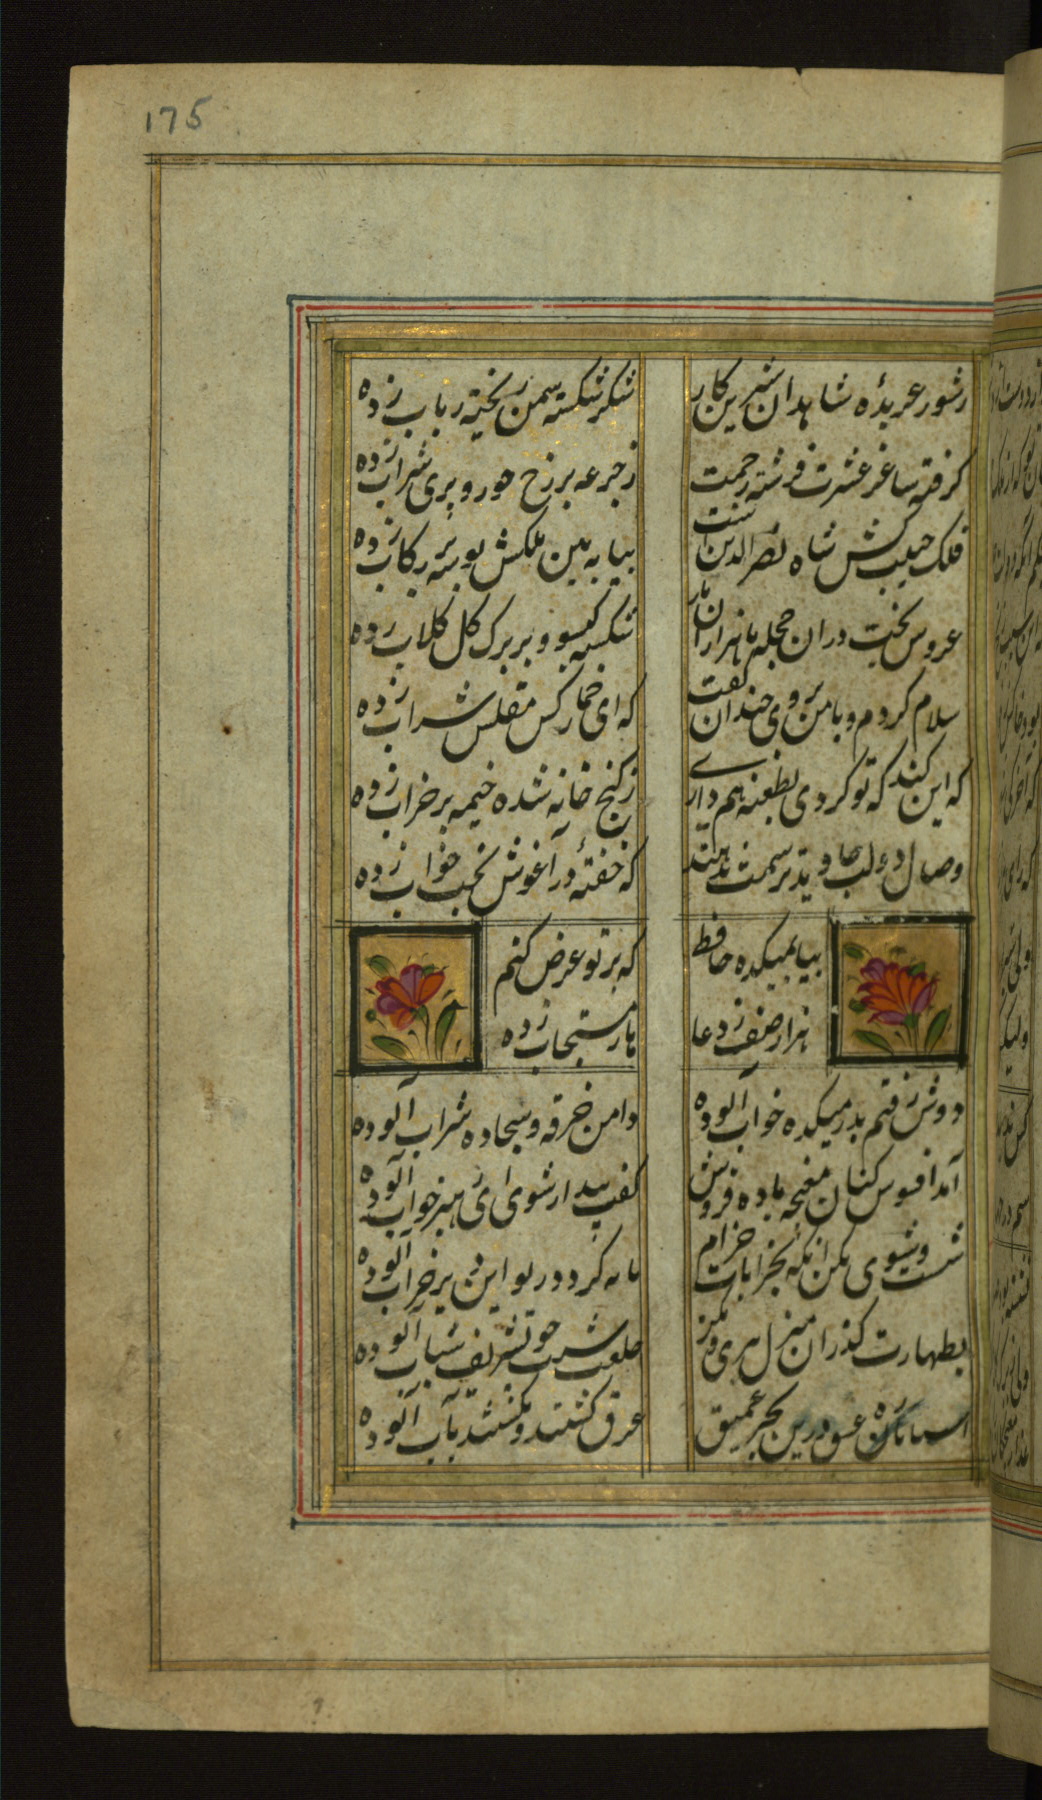 175
زشور عربدۀ شاهدان شیرین کار
شکر شکسته سمن ریخته رباب زده
گرفته ساغر عشرت فرشته رحمت
زجرعه بر رخ حور و پری شراب زده
فلک جنیبه کش شاه نصر الدین ست
بیا به بین ملکش بوسه بر رکاب زده
عروس بخت دران حجله با هزاران ناز
شکسته گیسو و بر برک کل کلاب زده
سلام کردم و با من بروی خندان گفت
که ای خمارکش مفلس شراب زده
که این کند که تو کردی
زکنج خانه شده خیمه بر خراب زده
وصال دولت بیدار ترسمت ندهند
که خفتۀ در آغوش بخت خواب زده
بیا بمیکده حافظ
که بر تو عرض کنم
هزار صف ز دعا
های مستجاب زده
دوش رفتم بدر میکده خواب آلوده
دامن خرقه و سجاده شراب آلوده
آمد افسوس کنان مغبچه باده فروش
گفت بیدار شو ای رهرو خواب آلوده
شست وشوی بکن انکه بخرابات خرام
تا نه گردد ز تو این دیر خراب آلوده
بطهارت گذران منزل پیری و مکن
خلعت شیب چو تشریف شباب آلوده
آشنایان ره عشق درین بحر عمیق
غرق گشتند و نگشتند بآب آلوده